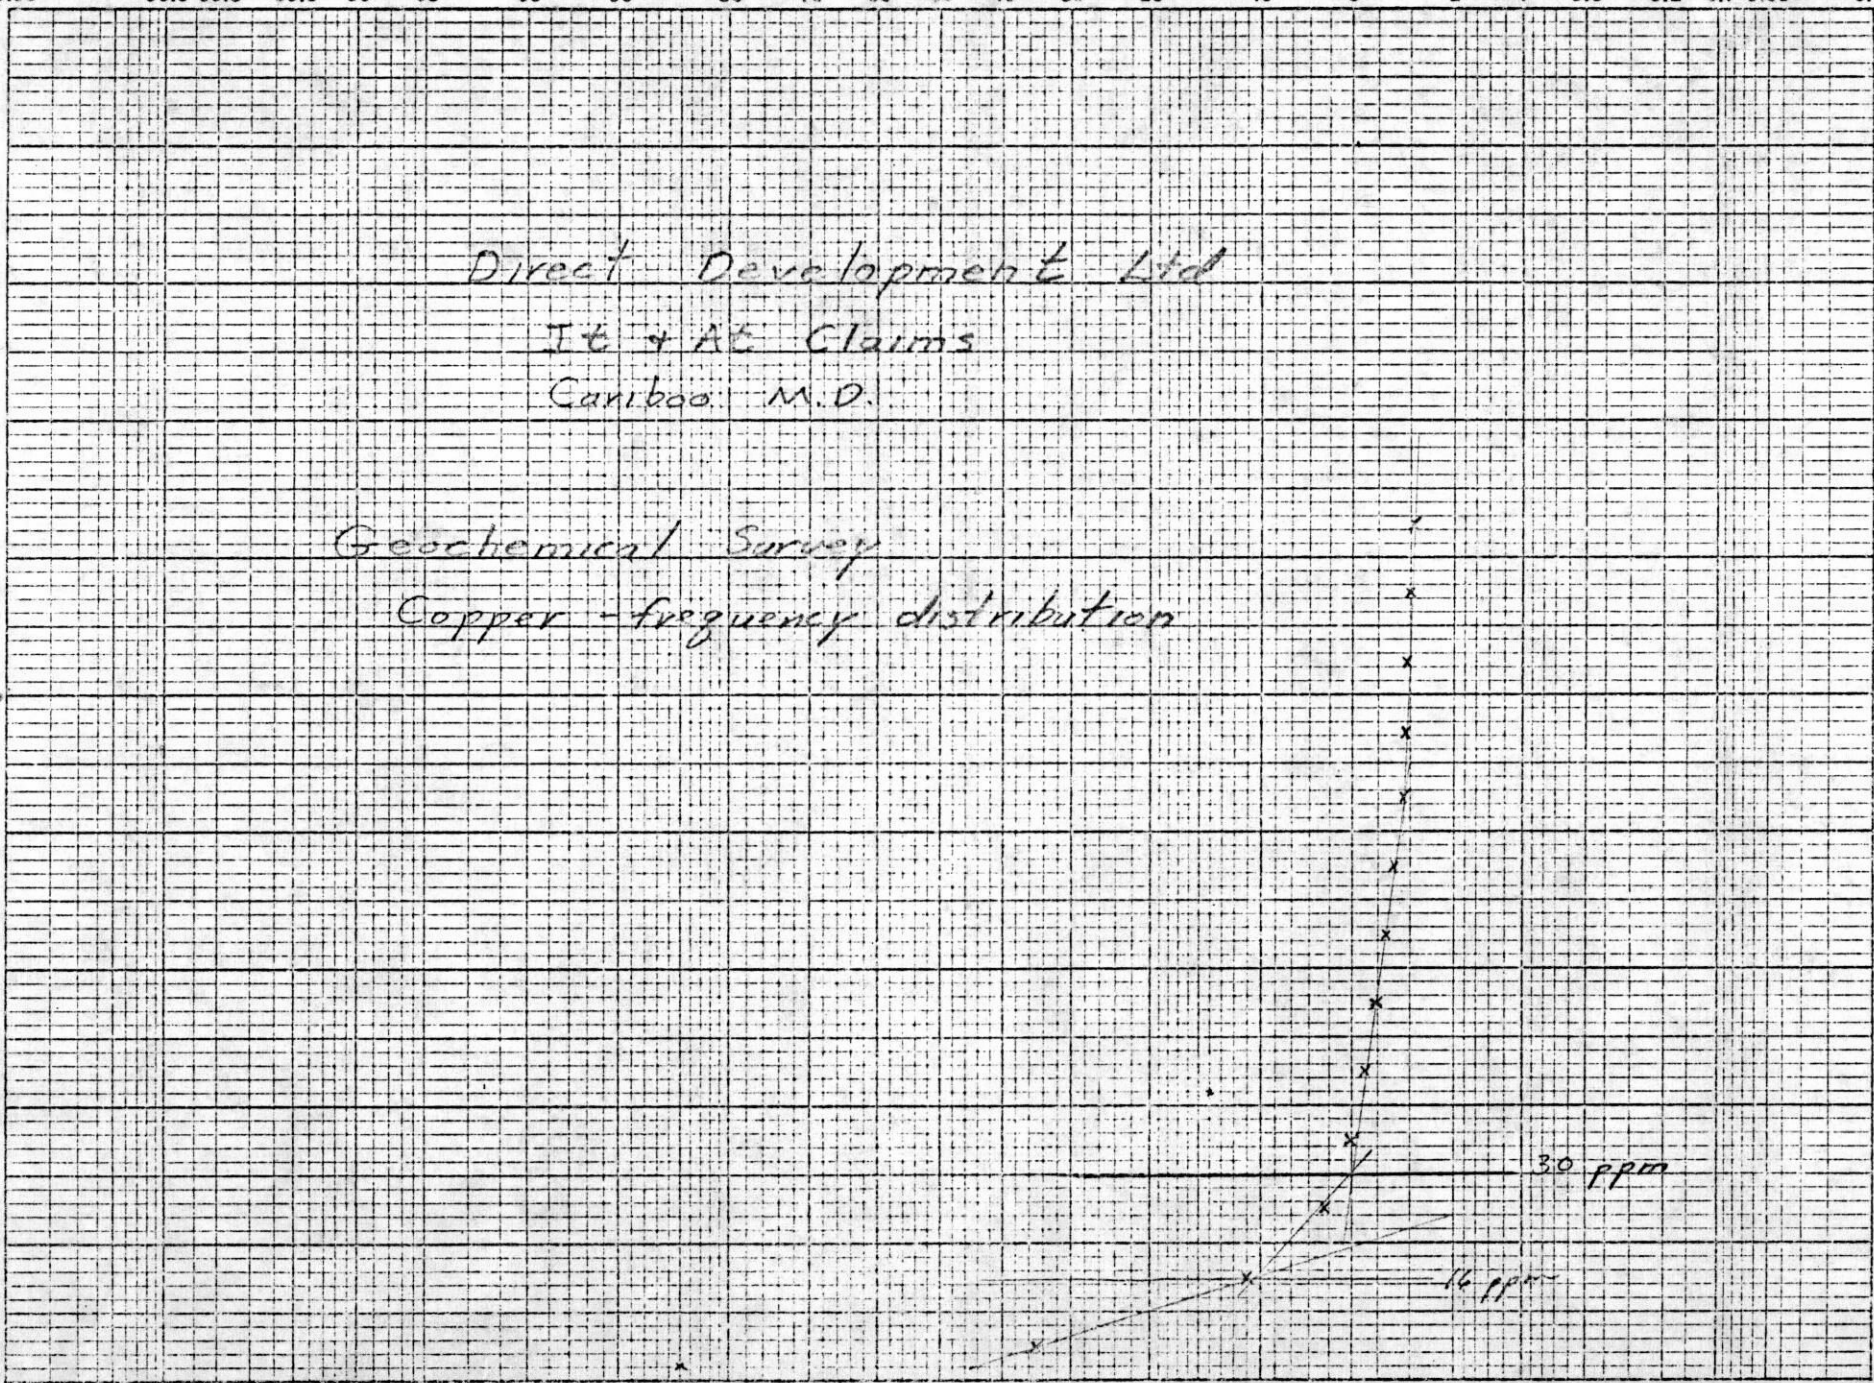 Direct Development Ltd
It & At Claims
Cariboo M.D.
Geochemical Survey
Copper - frequency distribution
30 ppm
16 ppm